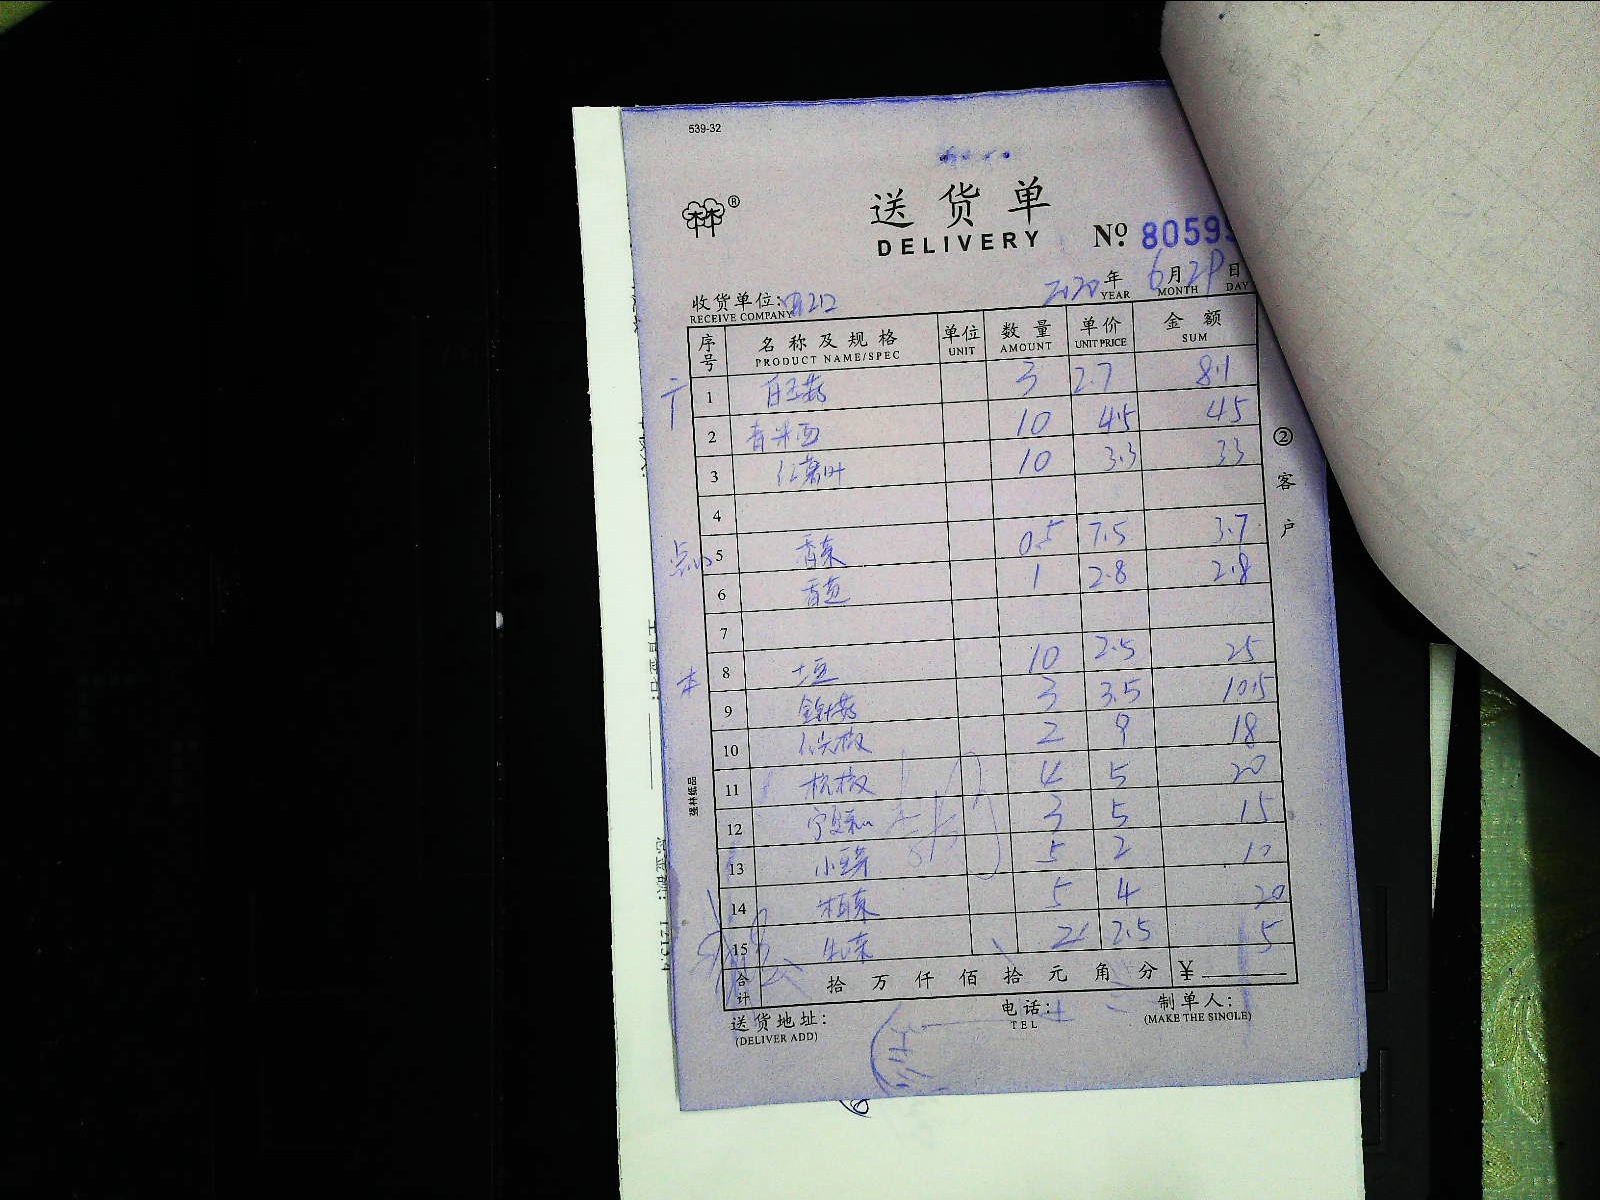 539-32
®
送货单
DELIVERY
Nº 8059
收货单位:
RECEIVE COMPANY
2020年 6月 29日
YEAR MONTH DAY
序号 名称及规格 单位 数量 单价 金额
PRODUCT NAME/SPEC UNIT AMOUNT UNIT PRICE SUM
1 白玉菇 3 2.7 8.1
2 10 4.5 45
3 红薯叶 10 3.3 33
4
点心 5 香菜 0.5 7.5 3.7
6 香葱 1 2.8 2.8
7
本 8 土豆 10 2.5 25
9 金针菇 3 3.5 10.5
10 2 9 18
11 杭椒 4 5 20
12 3 5 15
13 小豆芽 5 2 10
14 5 4 20
15 生菜 2 2.5 5
合计 拾 万 仟 佰 拾 元 角 分 ¥
送货地址:
(DELIVER ADD)
电话:
TEL
制单人:
(MAKE THE SINGLE)
②客户
强林纸品